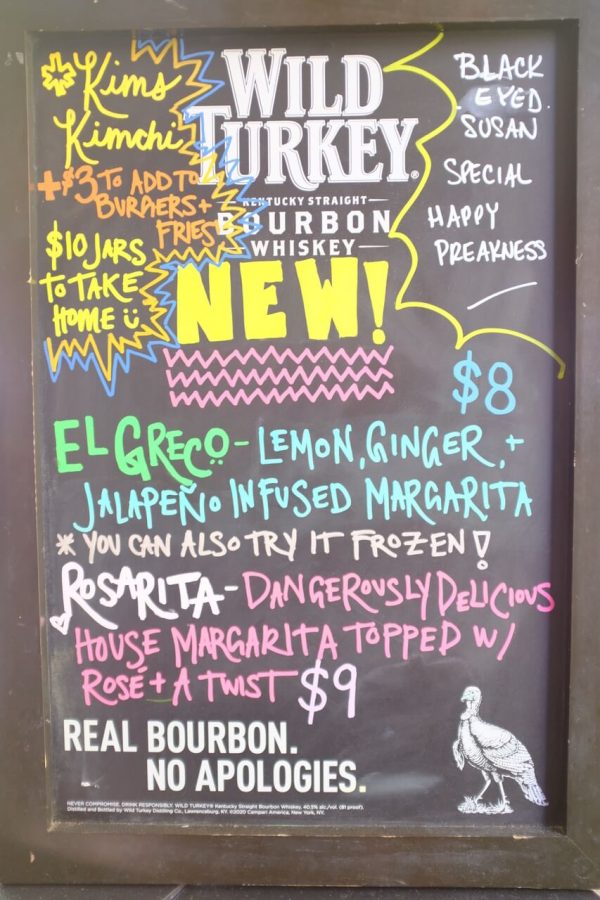 *Kims
Kimchi
+$3 TO ADD TO
BURGERS +
FRIES
$10 JARS
TO TAKE
HOME
WILD
TURKEY®
KENTUCKY STRAIGHT
BOURBON
WHISKEY
NEW!
BLACK
EYED
SUSAN
SPECIAL
HAPPY
PREAKNESS
$8
EL GRECO - LEMON, GINGER, +
JALAPEÑO INFUSED MARGARITA
* YOU CAN ALSO TRY IT FROZEN!
ROSARITA - DANGEROUSLY DELICIOUS
HOUSE MARGARITA TOPPED W/
ROSÉ + A TWIST $9
REAL BOURBON.
NO APOLOGIES.
NEVER COMPROMISE. DRINK RESPONSIBLY. WILD TURKEY® Kentucky Straight Bourbon Whiskey, 40.5% alc./vol. (81 proof).
Distilled and Bottled by Wild Turkey Distilling Co., Lawrenceburg, KY. ©2020 Campari America, New York, NY.